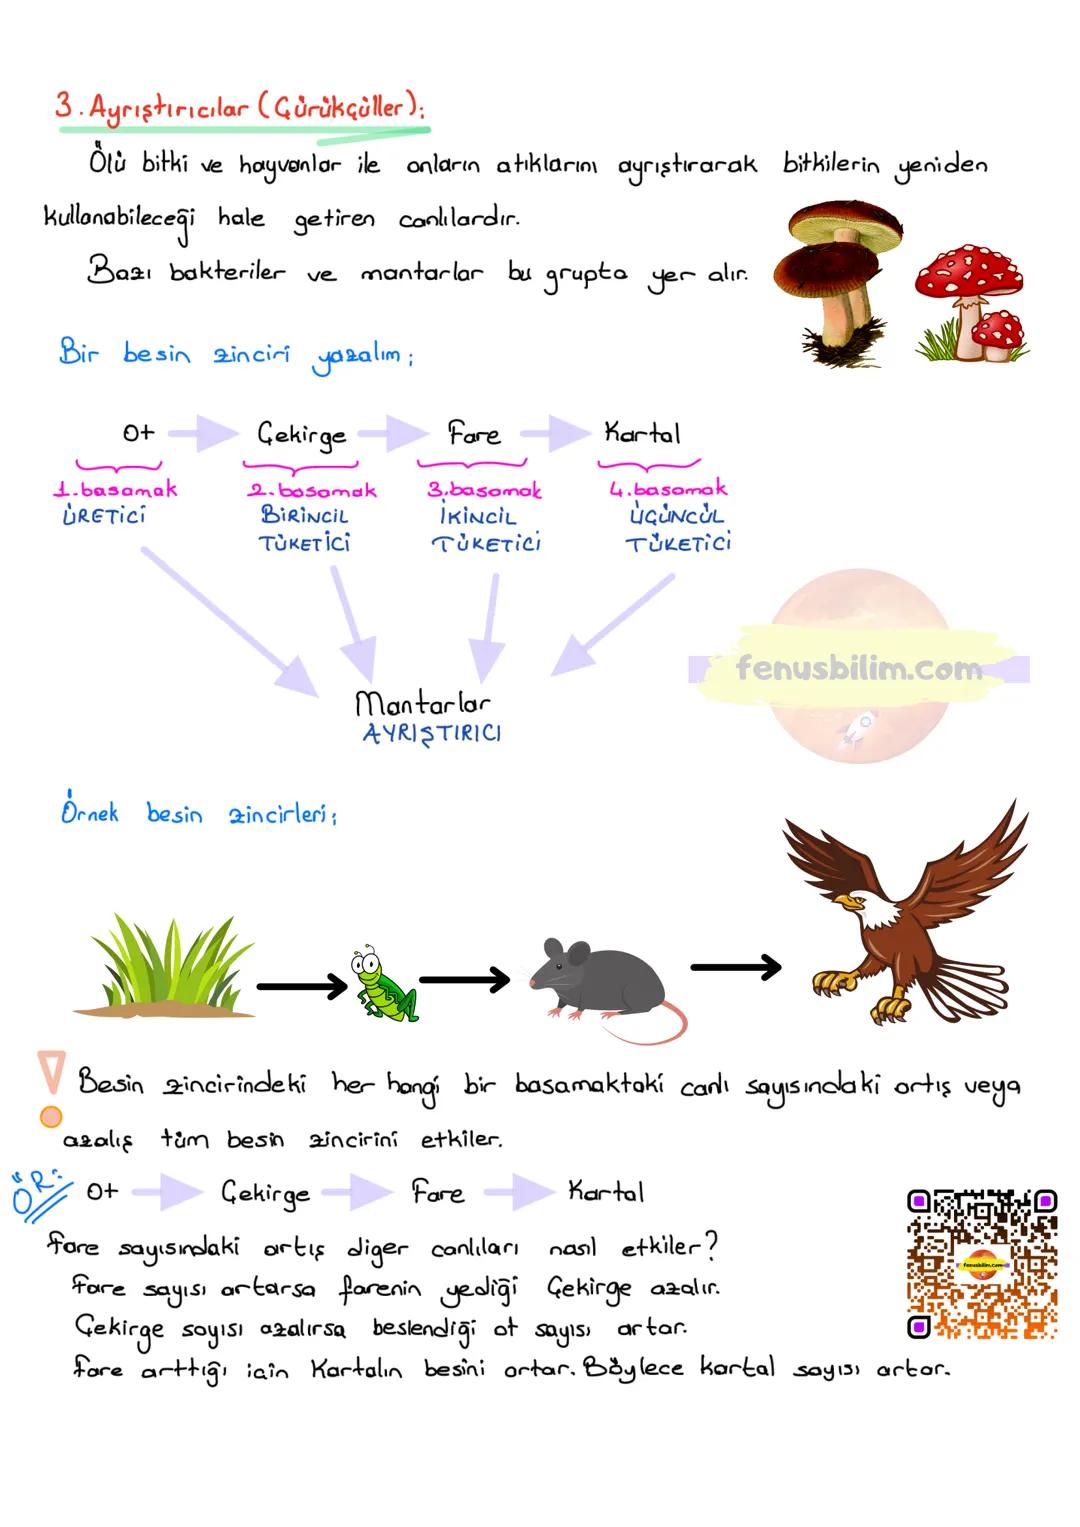 3. Ayrıştırıcılar (Çürükçüller):
Ölü bitki ve hayvanlar ile onların atıklarını ayrıştırarak bitkilerin yeniden
kullanabileceği hale getiren canlılardır.
Bazı bakteriler ve mantarlar bu grupta yer alır.
Bir besin zinciri yazalım;
Ot Çekirge Fare Kartal
1.basamak 2.basamak 3.basamak 4.basamak
ÜRETİCİ BİRİNCİL İKİNCİL ÜÇÜNCÜL
TÜKETİCİ TÜKETİCİ TÜKETİCİ
fenusbilim.com
Mantarlar
AYRIŞTIRICI
Örnek besin zincirleri;
Besin zincirindeki her hangi bir basamaktaki canlı sayısındaki artış veya
azalış tüm besin zincirini etkiler.
ÖR: Ot Çekirge Fare Kartal
Fare sayısındaki artış diger canlıları nasıl etkiler?
Fare sayısı artarsa farenin yediği Çekirge azalır.
Çekirge sayısı azalırsa beslendiği ot sayısı artar.
Fare arttığı için Kartalın besini artar. Böylece kartal sayısı artar.
fenusbilim.com